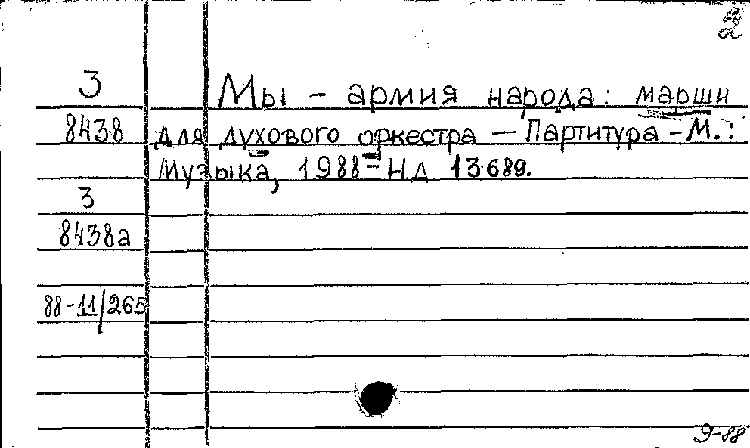 2
З Мы – армия народа: марши
8438 для духового оркестра – Партитура – М.:
Музыка, 1988 – НД 13689.
З
8438а
88-11/265
9-88